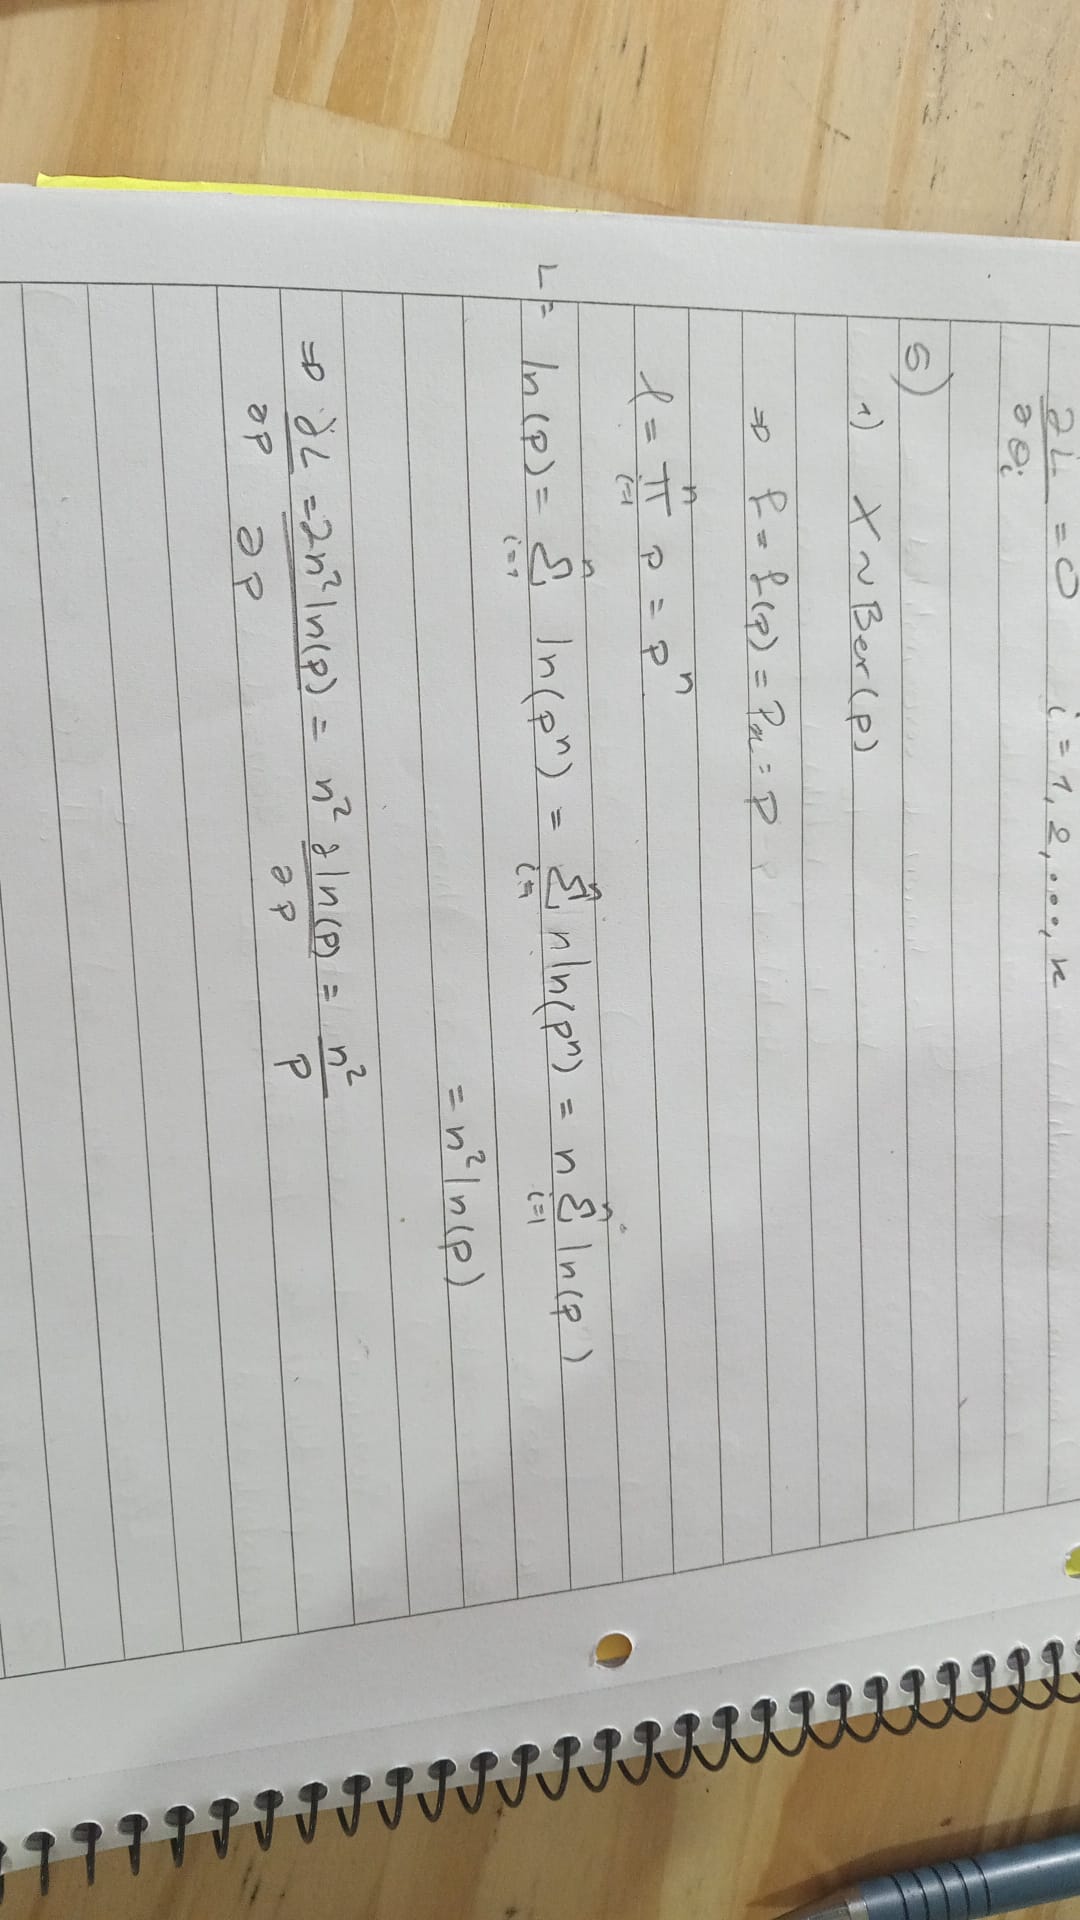 ∂L/∂θᵢ = 0   i = 1, 2, ..., k
5)
1) X ~ Ber(p)
⇒ f = f(p) = Pₓ = P
l = ∏ⁿᵢ₌₁ p = pⁿ
L = ln(p) = Σⁿᵢ₌₁ ln(pⁿ) = Σⁿᵢ₌₁ n ln(pⁿ) = n Σⁿᵢ₌₁ ln(p)
= n² ln(p)
⇒ ∂L/∂p = ∂n² ln(p)/∂p = n² ∂ln(p)/∂p = n²/p